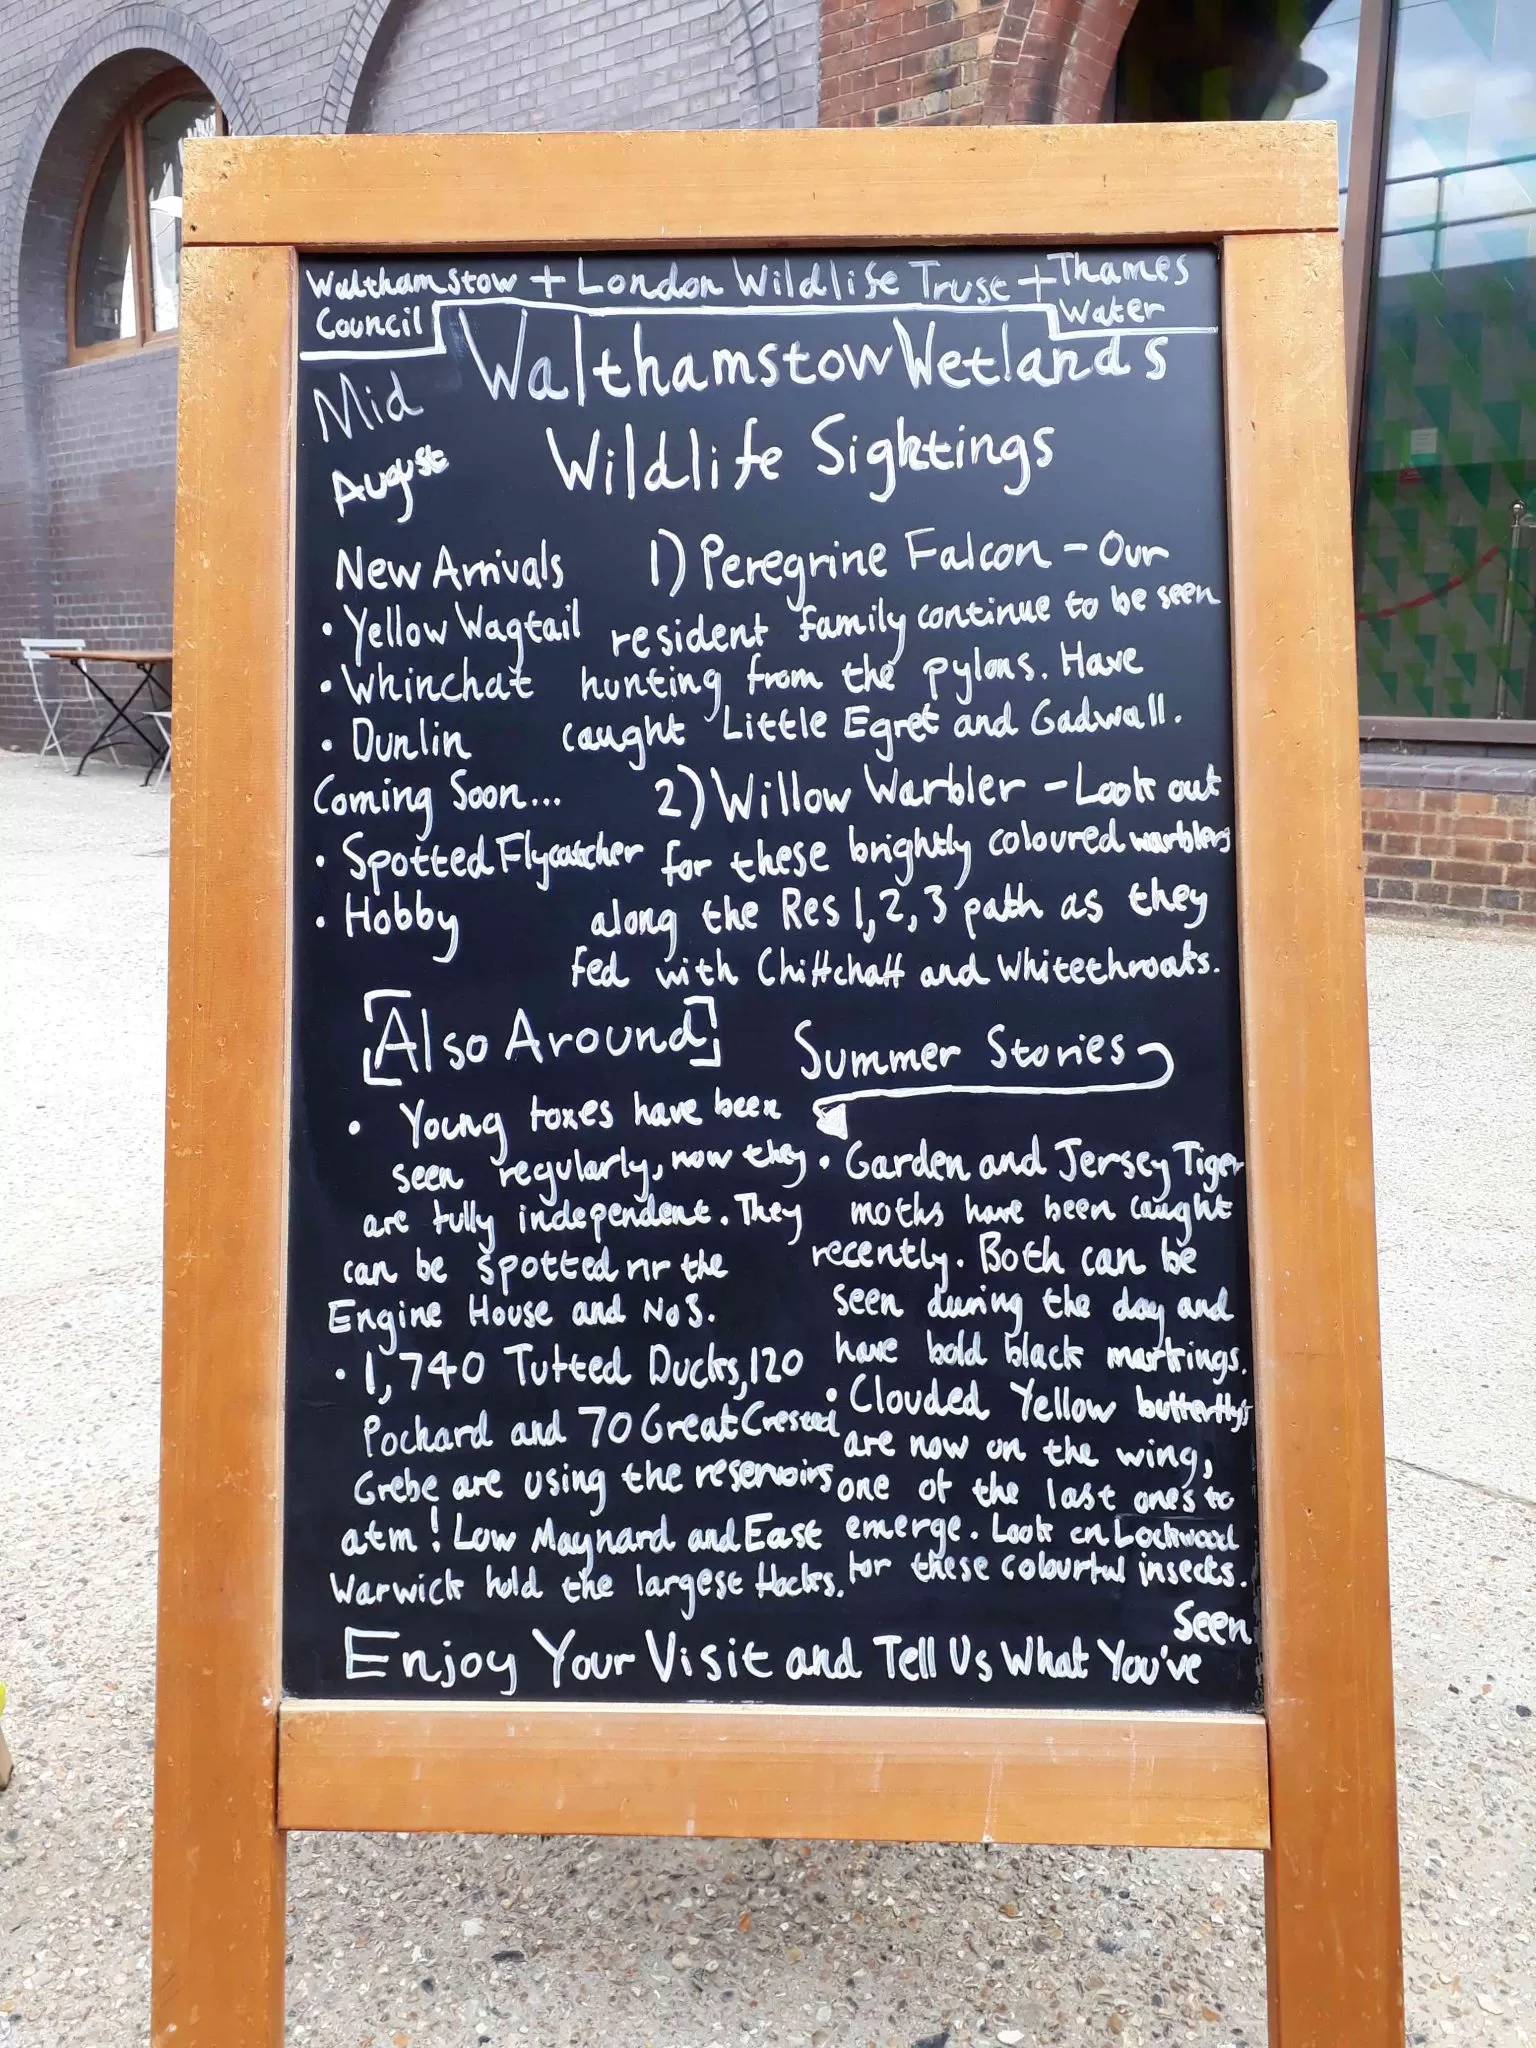 Walthamstow + London Wildlife Trust + Thames
Council
Water
Mid
August
Walthamstow Wetlands
Wildlife Sightings
New Arrivals
• Yellow Wagtail
• Whinchat
• Dunlin
Coming Soon...
• Spotted Flycatcher
• Hobby
1) Peregrine Falcon - Our
resident family continue to be seen
hunting from the pylons. Have
caught Little Egret and Gadwall.
2) Willow Warbler - Look out
for these brightly coloured warblers
along the Res 1, 2, 3 path as they
fed with Chiffchaff and Whitethroats.
[Also Around]
• Young foxes have been
seen regularly, now they
are fully independent. They
can be spotted nr the
Engine House and No3.
• 1,740 Tufted Ducks, 120
Pochard and 70 Great Crested
Grebe are using the reservoirs
atm! Low Maynard and East
Warwick hold the largest flocks.
Summer Stories
• Garden and Jersey Tiger
moths have been caught
recently. Both can be
seen during the day and
have bold black markings.
• Clouded Yellow butterflys
are now on the wing,
one of the last ones to
emerge. Look on Lockwood
for these colourful insects.
Enjoy Your Visit and Tell Us What You've
Seen